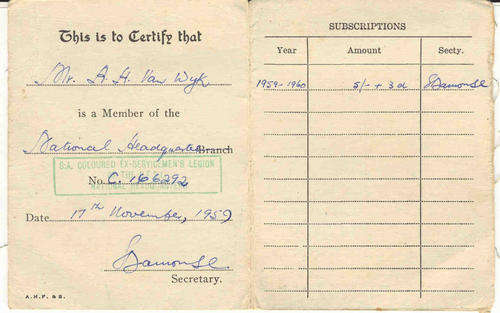 This is to Certify that
Mr. A. H. Van Wyk
is a Member of the
National Headquarters Branch
S.A. COLOURED EX-SERVICEMEN'S LEGION
No C. 166292
Date 17th November, 1959
Secretary.
A.H.F. & S.
SUBSCRIPTIONS
Year Amount Secty.
1959-1960 5/- + 3d